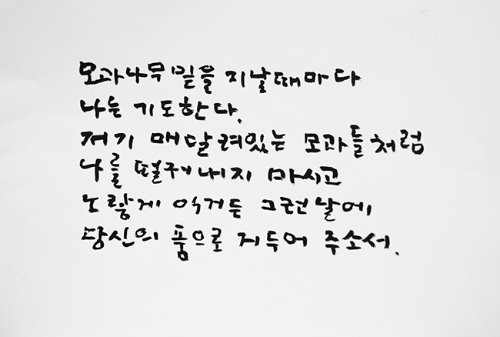 모과나무 밑을 지날때마다
나는 기도한다.
저기 매달려있는 모과들처럼
나를 떨궈내지 마시고
노랗게 익거든 그런 날에,
당신의 품으로 거두어 주소서.